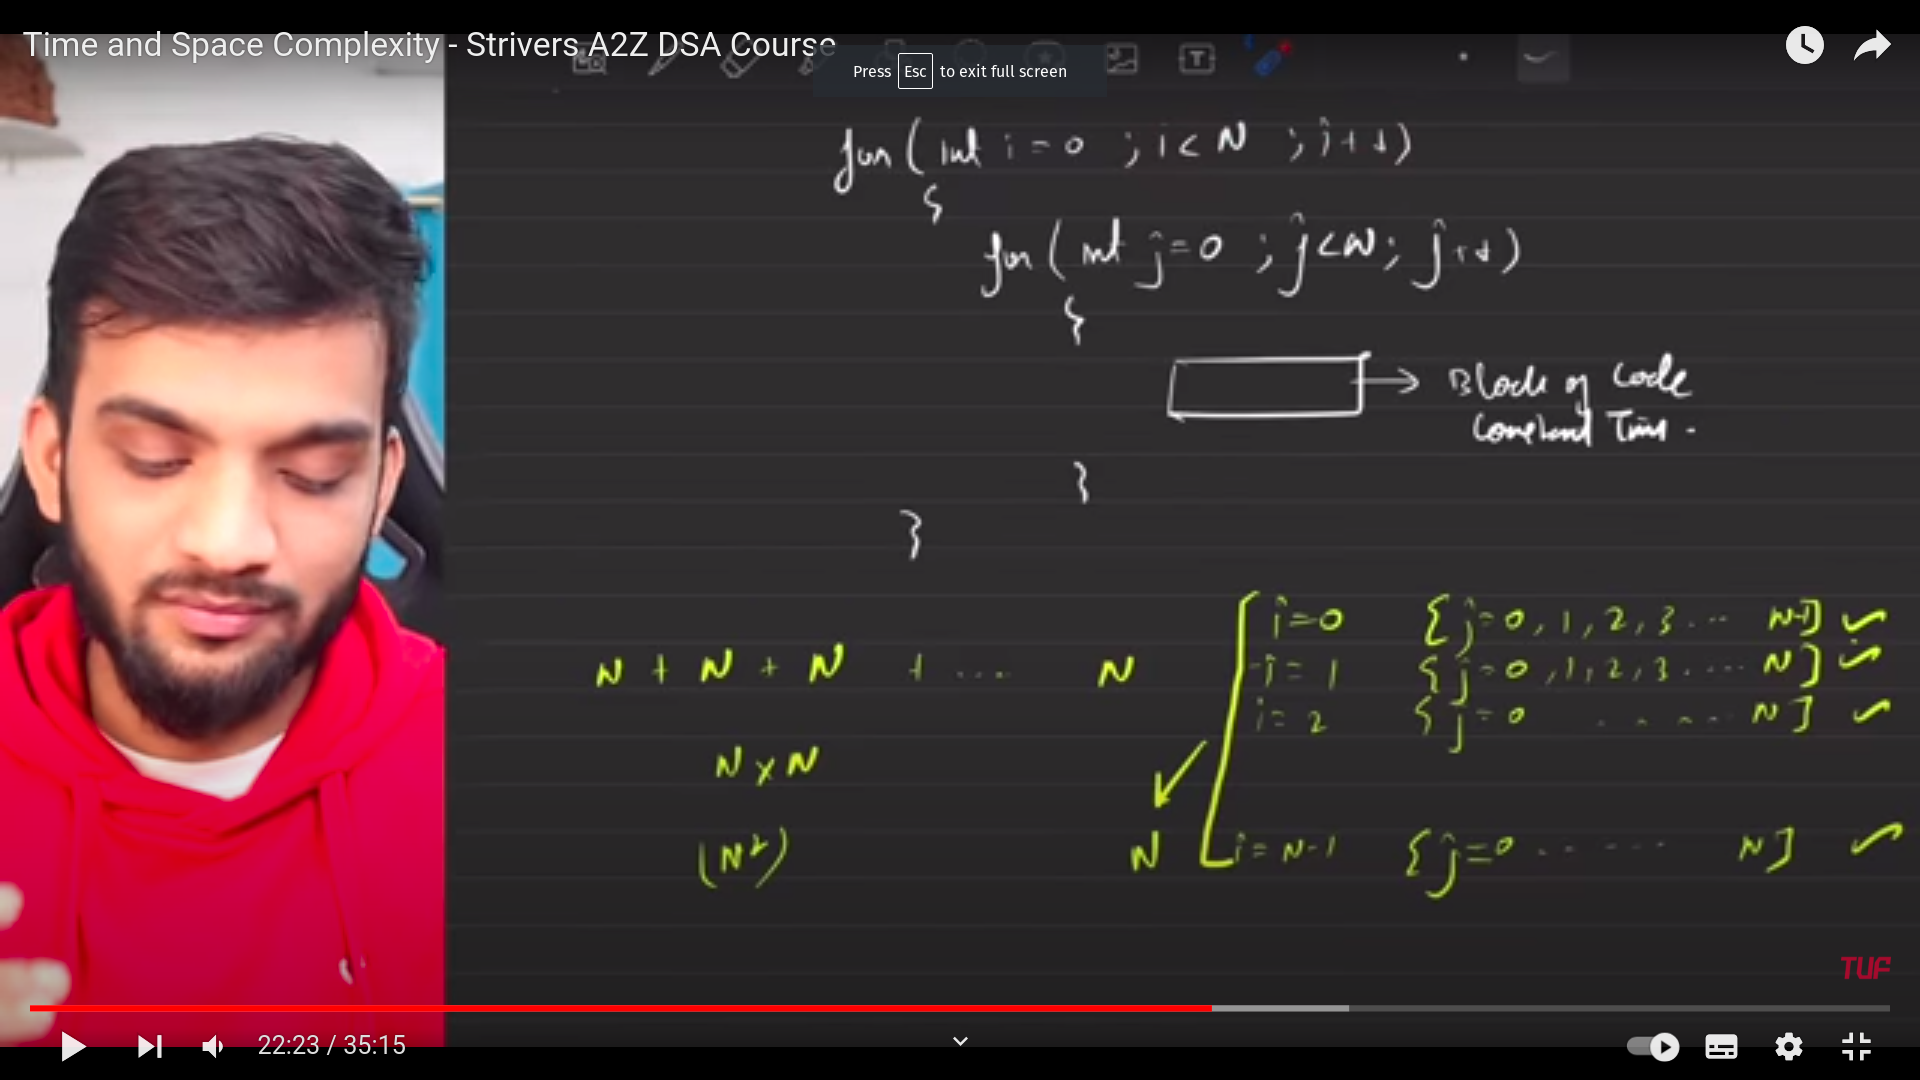 Time and Space Complexity - Strivers A2Z DSA Course
Press Esc to exit full screen
for( int i = 0 ; i < N ; i++)
{
for( int j=0 ; j<N; j++)
{
Block of Code
Constant Time -
}
}
i=0 {j=0, 1, 2, 3 ... N-1] ✓
N + N + N + .... N i = 1 {j=0, 1, 2, 3 .... N] ✓
i= 2 {j=0 ..... N] ✓
N x N
(N²) N i= N-1 {j=0 ...... N] ✓
TUF
22:23 / 35:15